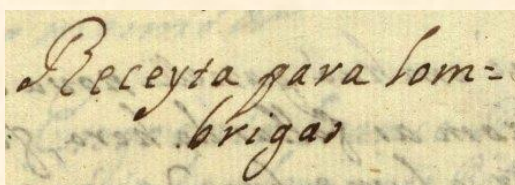 Receyta para lom=
brigas